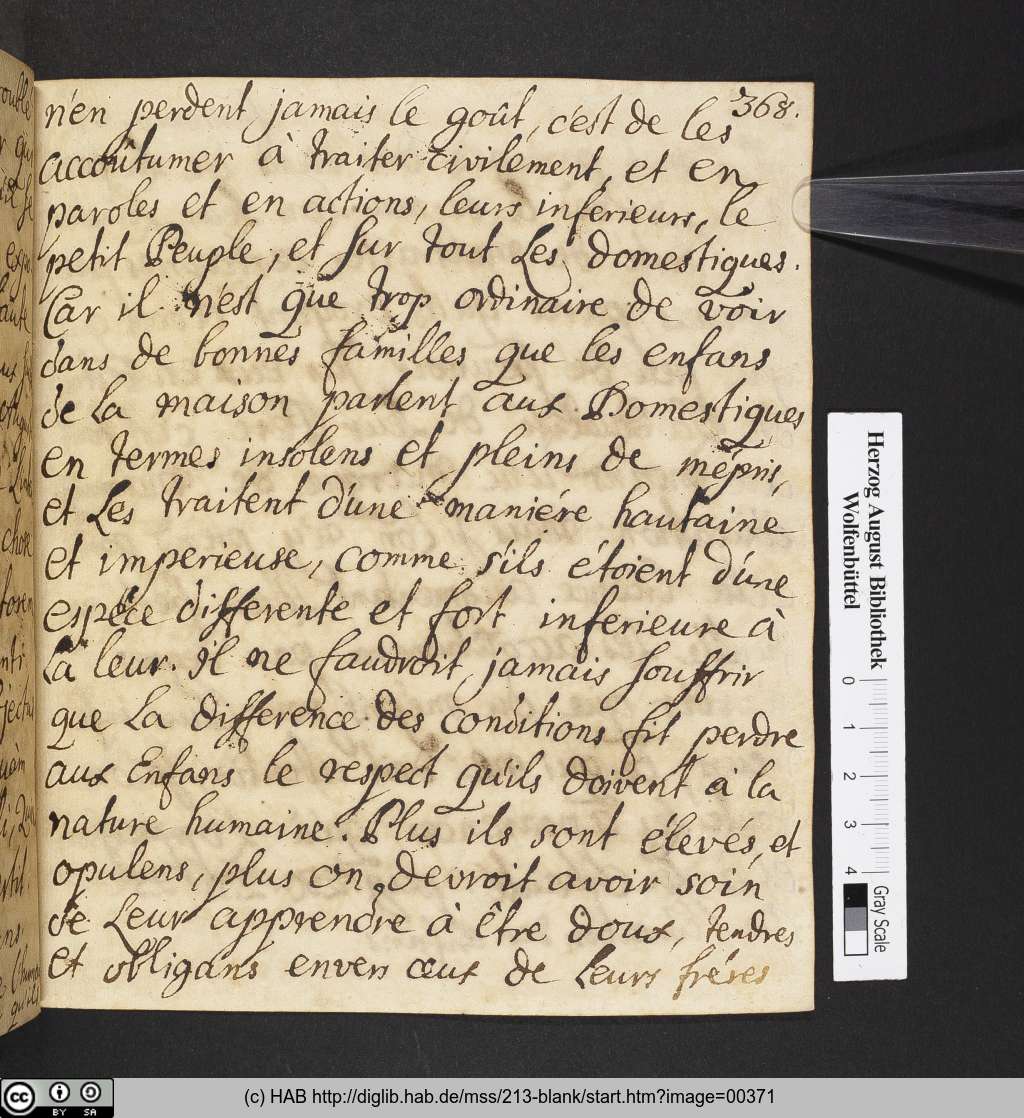 368.
n'en perdent jamais le goût, c'est de les
accoûtumer à traiter civilement, et en
paroles et en actions, leurs inferieurs, le
petit Peuple, et sur tout Les domestiques.
Car il n'est que trop ordinaire de voir
dans de bonnes familles que les enfans
de la maison parlent aux Domestiques
en termes insolens et pleins de mépris,
et Les traitent d'une maniére hautaine
et imperieuse, comme s'ils étoient d'une
espéce differente et fort inferieure à
La leur. Il ne faudroit jamais souffrir
que La difference des conditions fit perdre
aux Enfans le respect qu'ils doivent à la
nature humaine. Plus ils sont élevés, et
opulens, plus on devroit avoir soin
de Leur apprendre à être doux, tendres
et obligans envers ceux de Leurs fréres
Herzog August Bibliothek
Wolfenbüttel
0 1 2 3 4
Gray Scale
(c) HAB http://diglib.hab.de/mss/213-blank/start.htm?image=00371
cc BY SA